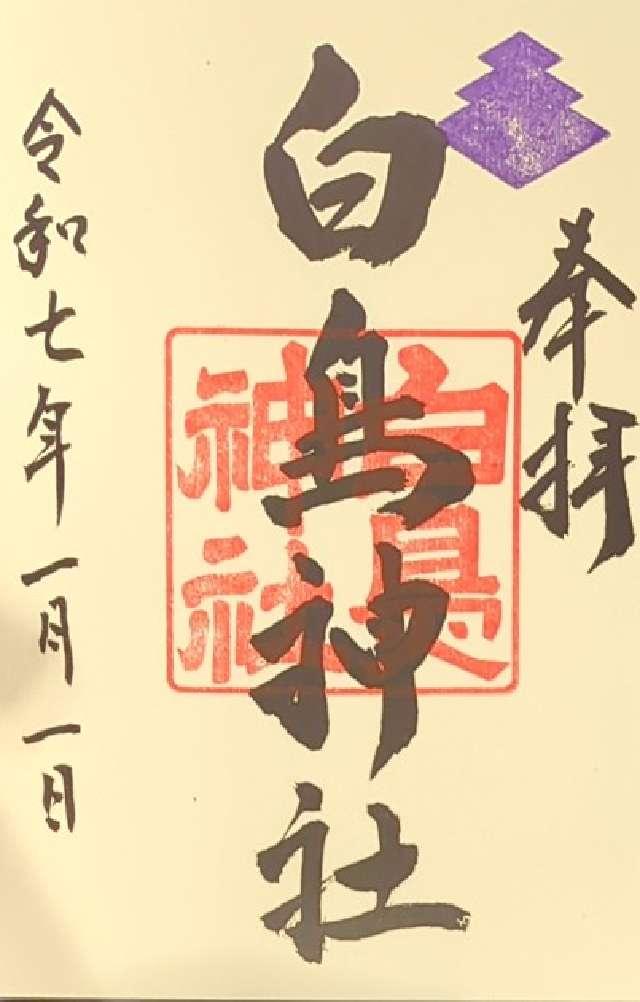 奉拝
白鳥神社
白鳥
神社
令和七年一月一日